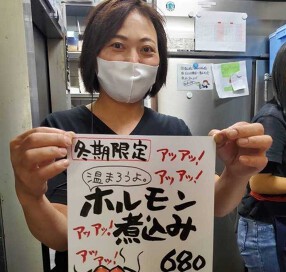 冬期限定
アッアッ!
アッアッ!
温まろうよ。
アッアッ!
ホルモン
アッアッ!
煮込み
アッアッ!
680